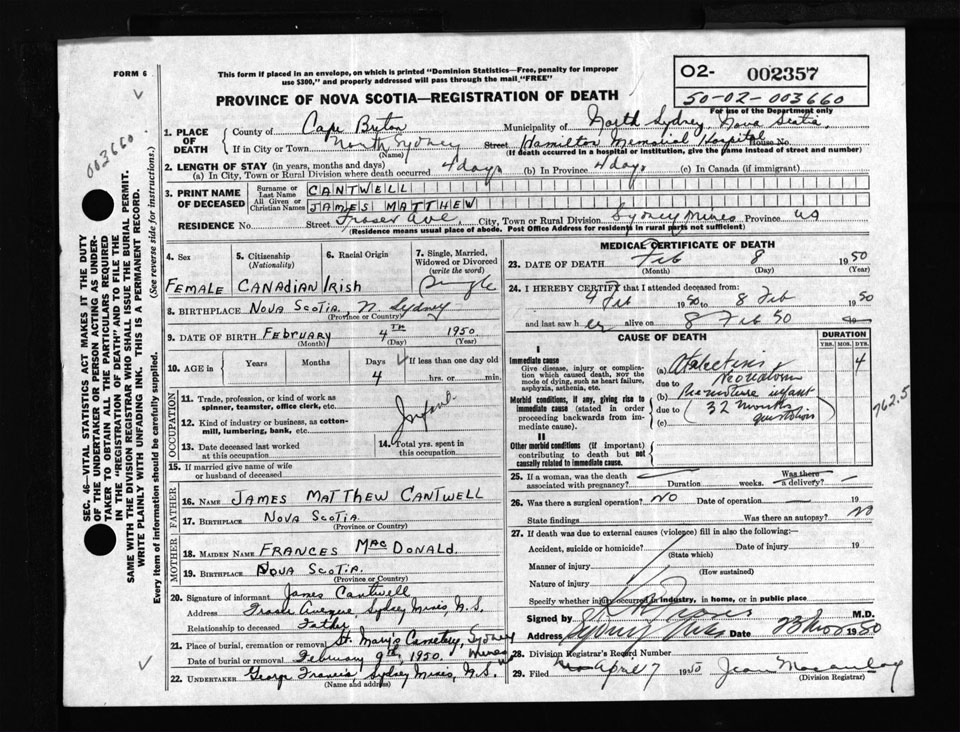 FORM 6
This form if placed in an envelope, on which is printed "Dominion Statistics—Free, penalty for improper
use $300," and properly addressed will pass through the mail "FREE"
O2- 002357
50-02-003660
For use of the Department only
PROVINCE OF NOVA SCOTIA—REGISTRATION OF DEATH
003660
SEC. 46—VITAL STATISTICS ACT MAKES IT THE DUTY
OF THE UNDERTAKER OR PERSON ACTING AS UNDER-
TAKER TO OBTAIN ALL THE PARTICULARS REQUIRED
IN THE "REGISTRATION OF DEATH" AND TO FILE THE
SAME WITH THE DIVISION REGISTRAR WHO SHALL ISSUE THE BURIAL PERMIT.
WRITE PLAINLY WITH UNFADING INK. THIS IS A PERMANENT RECORD.
Every item of information should be carefully supplied. (See reverse side for instructions.)
1. PLACE OF DEATH County of Cape Breton Municipality of North Sydney, Nova Scotia,
If in City or Town North Sydney Street Hamilton Memorial Hospital House No.
(Name) (If death occurred in a hospital or institution, give the name instead of street and number)
2. LENGTH OF STAY (in years, months and days)
(a) In City, Town or Rural Division where death occurred 4 days (b) In Province 4 days (c) In Canada (if immigrant)
3. PRINT NAME OF DECEASED Surname or Last Name CANTWELL
All Given or Christian Names JAMES MATTHEW
RESIDENCE No. Street Fraser Ave. City, Town or Rural Division Sydney Mines Province NS
(Residence means usual place of abode. Post Office Address for residents in rural parts not sufficient)
4. Sex 5. Citizenship (Nationality) 6. Racial Origin 7. Single, Married, Widowed or Divorced (write the word)
FEMALE CANADIAN IRISH Single
8. BIRTHPLACE NOVA SCOTIA, N. Sydney
(Province or Country)
9. DATE OF BIRTH FEBRUARY 4TH 1950
(Month) (Day) (Year)
10. AGE in Years Months Days If less than one day old
4 hrs. or min.
OCCUPATION
11. Trade, profession, or kind of work as
spinner, teamster, office clerk, etc.
Infant
12. Kind of industry or business, as cotton-
mill, lumbering, bank, etc.
13. Date deceased last worked
at this occupation
14. Total yrs. spent in
this occupation
15. If married give name of wife
or husband of deceased
FATHER
16. NAME JAMES MATTHEW CANTWELL
17. BIRTHPLACE NOVA SCOTIA.
(Province or Country)
MOTHER
18. MAIDEN NAME FRANCES MACDONALD.
19. BIRTHPLACE NOVA SCOTIA.
(Province or Country)
20. Signature of informant James Cantwell
Address Fraser Avenue, Sydney Mines N.S.
Relationship to deceased Father
21. Place of burial, cremation or removal St. Mary's Cemetery, Sydney Mines
Date of burial or removal February 9th, 1950.
22. UNDERTAKER George Francis, Sydney Mines, N.S.
(Name and address)
MEDICAL CERTIFICATE OF DEATH
23. DATE OF DEATH Feb 8 1950
(Month) (Day) (Year)
24. I HEREBY CERTIFY that I attended deceased from:
4 Feb 1950 to 8 Feb 1950
and last saw her alive on 8 Feb 50
CAUSE OF DEATH DURATION
YRS. MOS. DYS.
I
Immediate cause
Give disease, injury or complica-
tion which caused death, nor the
mode of dying, such as heart failure,
asphyxia, asthenia, etc.
(a) Atelectasis 4
due to Neonatorum
Morbid conditions, if any, giving rise to
immediate cause (stated in order
proceeding backwards from im-
mediate cause).
(b) Premature infant
due to (32
(c)
762.5
II
Other morbid conditions (if important)
contributing to death but not
causally related to immediate cause.
25. If a woman, was the death Was there
associated with pregnancy? Duration weeks. a delivery?
26. Was there a surgical operation? NO Date of operation 19
State findings Was there an autopsy? NO
27. If death was due to external causes (violence) fill in also the following:—
Accident, suicide or homicide? Date of injury 19
(State which)
Manner of injury
(How sustained)
Nature of injury
Specify whether injury occurred in industry, in home, or in public place
Signed by M.D.
Address Sydney Mines Date 1950
28. Division Registrar's Record Number
29. Filed April 7 1950 Jean Macaulay
(Division Registrar)